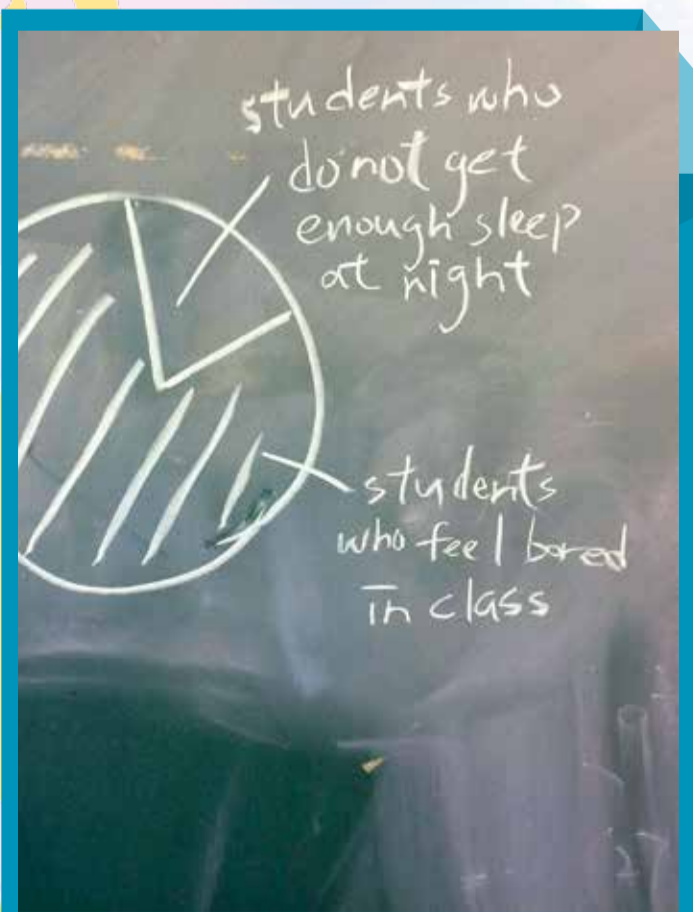 students who
do not get
enough sleep
at night
students
who feel bored
in class